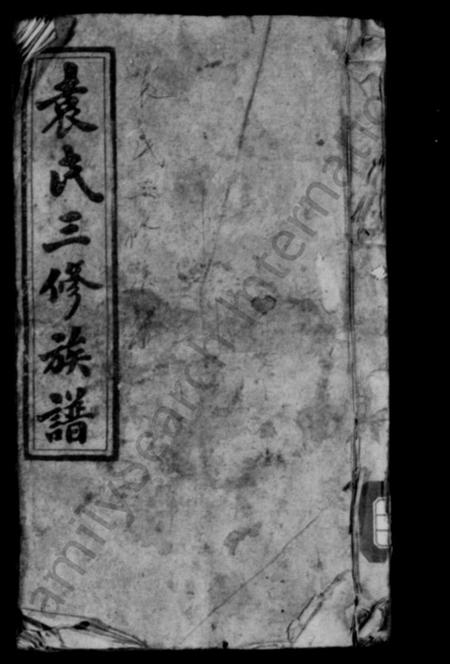 袁氏三修族譜
familysearch International